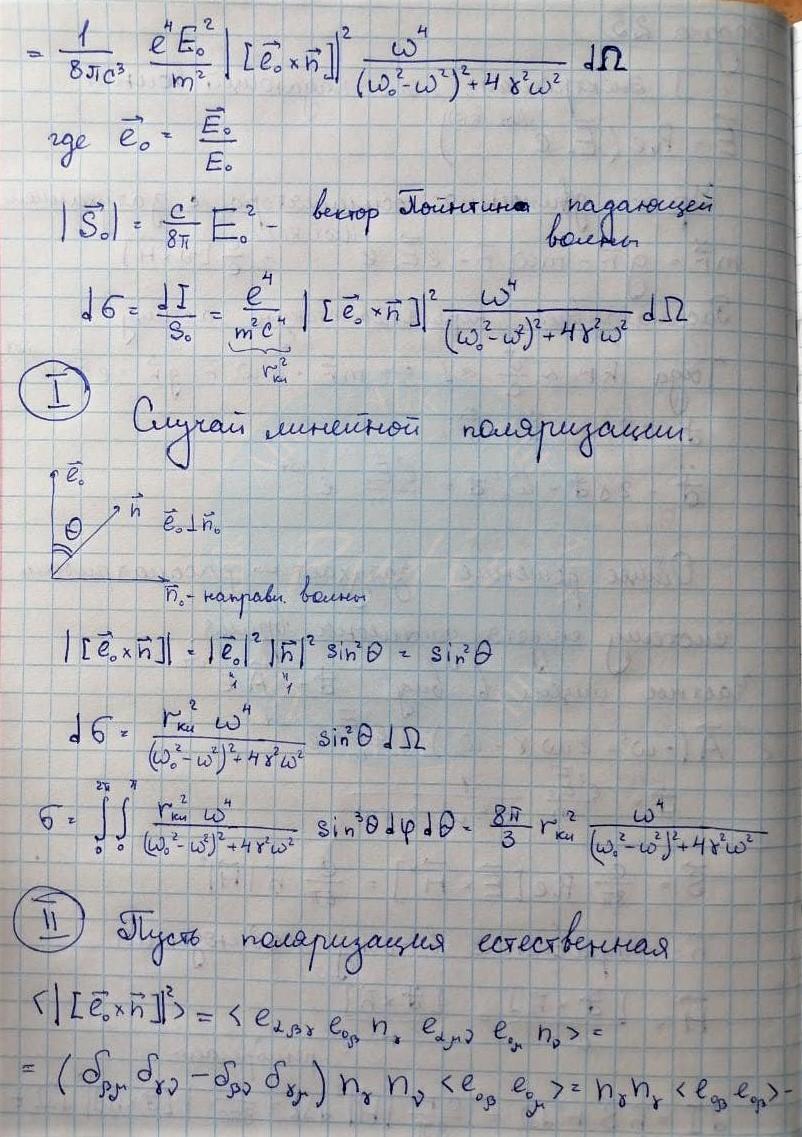 = 1/(8πc³) e⁴E₀²/m² |[e⃗₀×n⃗]|² ω⁴/((ω₀²-ω²)²+4γ²ω²) dΩ
где e⃗₀ = E⃗₀/E₀
|S⃗₀| = c/8π E₀² - вектор Пойнтинга падающей
волны
dσ = dI/S₀ = e⁴/(m²c⁴) |[e⃗₀×n⃗]|² ω⁴/((ω₀²-ω²)²+4γ²ω²) dΩ
r²кл
I
Случай линейной поляризации.
e⃗₀
n⃗
θ e⃗₀⊥n⃗₀
n⃗₀ - направл. волны
|[e⃗₀×n⃗]| = |e⃗₀|² |n⃗|² sin²θ = sin²θ
" "
1 1
dσ = r²кл ω⁴/((ω₀²-ω²)²+4γ²ω²) sin²θ dΩ
σ = ∫₀^2π ∫₀^π r²кл ω⁴/((ω₀²-ω²)²+4γ²ω²) sin³θ dφ dθ = 8π/3 r²кл ω⁴/((ω₀²-ω²)²+4γ²ω²)
II
Пусть поляризация естественная
<|[e⃗₀×n⃗]|²> = <e_αβγ e_0β n_γ e_αμν e_0μ n_ν> =
= (δ_βμ δ_γν - δ_βν δ_γμ) n_γ n_ν <e_0β e_0μ> = n_γ n_γ <e_0β e_0β> -